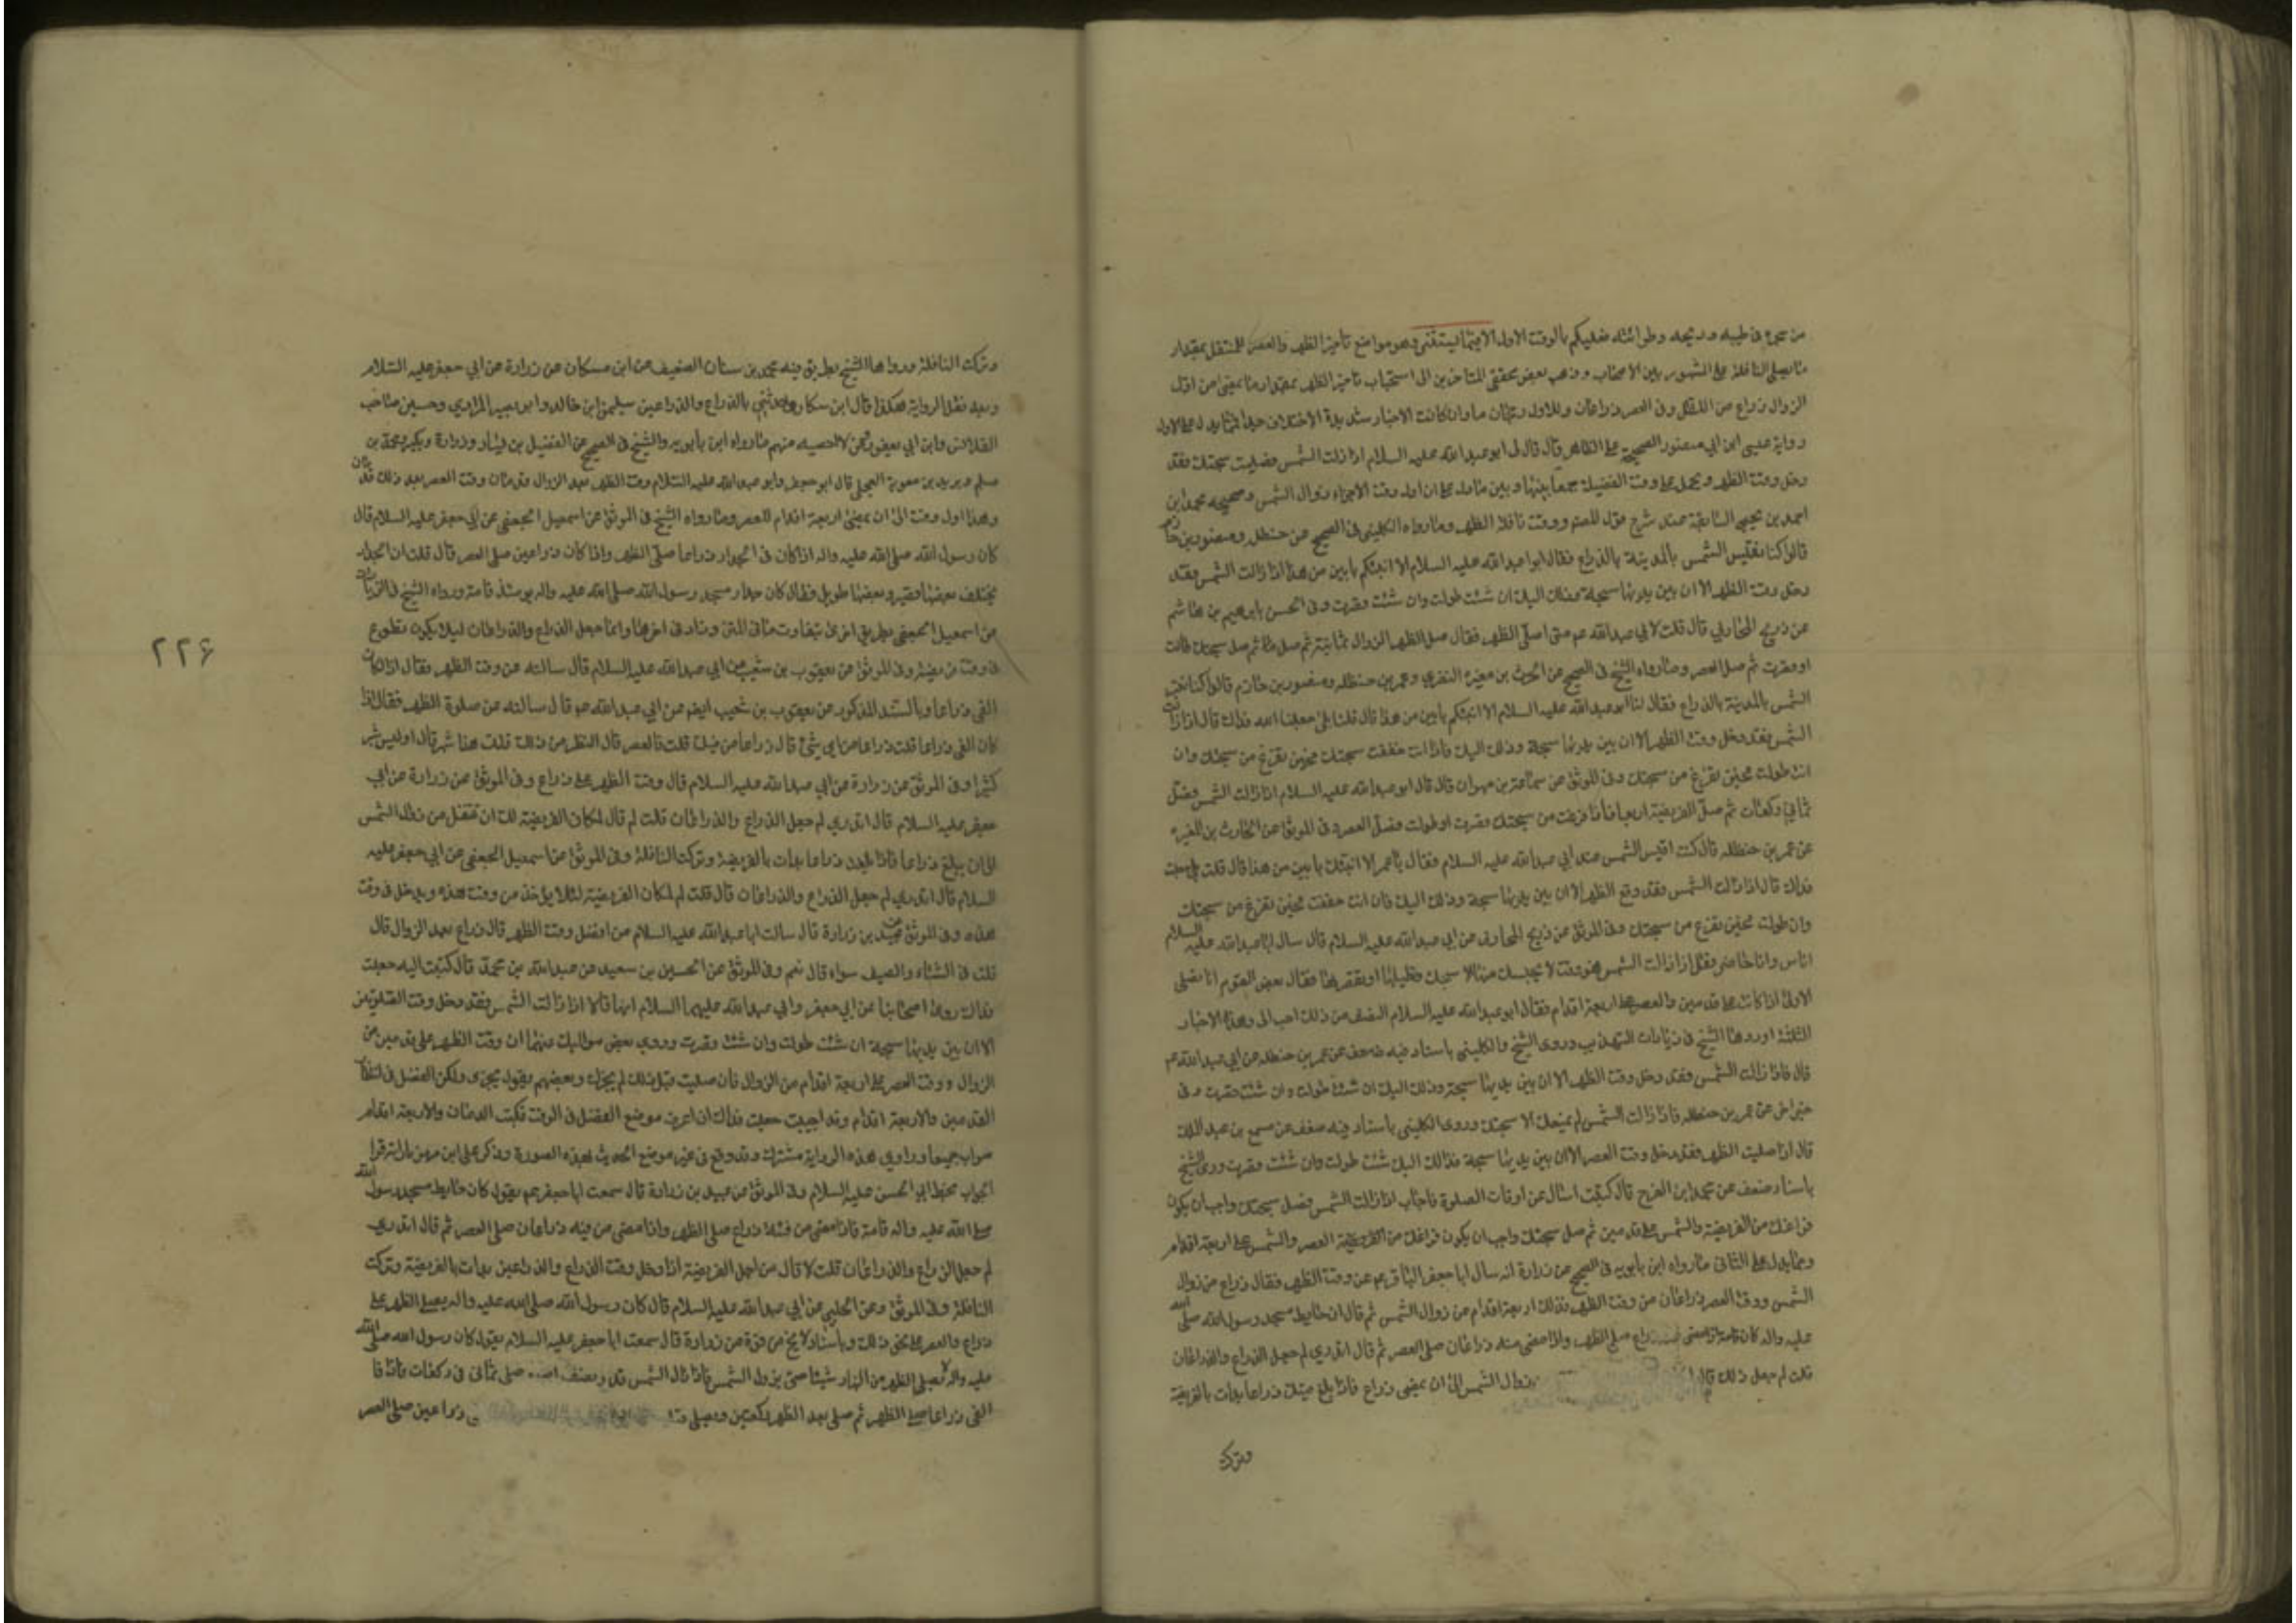 من تحرى في طيبه وريحه وطراوته فعليكم بالوقت الاول الا فيما يستثنى وهو مواضع تأخير الظهر والعصر للمتنفل بمقدار
ما يصلي النافلة على المشهور بين الاصحاب وذهب بعض محققي المتاخرين الى استحباب تاخير الظهر بمقدار ما يمضي من اول
الزوال ذراع من الظل وفي العصر ذراعان وللاول رجحان ما وان كانت الاخبار شديدة الاختلاف جدا فمما يدل على الاول
رواية عيسى ابن ابي منصور الصحيحة على الظاهر قال قال لى ابو عبد الله عليه السلام اذا زالت الشمس فصليت سبحتك فقد
دخل وقت الظهر ويحمل على وقت الفضيلة جمعا بينها وبين ما دل على ان اول وقت الاجزاء زوال الشمس وصحيحه محمد ابن
احمد بن يحيى السابقة عند شرح قول المصنف ووقت نافلة الظهر وما رواه الكليني في الصحيح عن حنظله ومنصور بن حازم
قالوا كنا نقيس الشمس بالمدينة بالذراع فقال ابو عبد الله عليه السلام الا انبئكم بابين من هذا اذا زالت الشمس فقد
دخل وقت الظهر الا ان بين يديها سبحة وذلك اليك ان شئت طولت وان شئت قصرت وفي الحسن بابراهيم بن هاشم
عن ذريح المحاربي قال قلت لابي عبد الله عم متى اصلي الظهر فقال صل الظهر الزوال ثمانية ثم صل ظهرا ثم صل سبحتك طالت
او قصرت ثم صل العصر وما رواه الشيخ في الصحيح عن الحرث بن مغيرة النضري وعمر بن حنظله ومنصور بن حازم قالوا كنا نقيس
الشمس بالمدينة بالذراع فقال لنا ابو عبد الله عليه السلام الا انبئكم بابين من هذا قال قلنا بلى جعلنا الله فداك قال اذا زالت
الشمس فقد دخل وقت الظهر الا ان بين يديها سبحة وذلك اليك فاذا انت خففت سبحتك فحين تفرغ من سبحتك وان
انت طولت فحين تفرغ من سبحتك وفي الموثق عن سماعة بن مهران قال قال ابو عبد الله عليه السلام اذا زالت الشمس فصل
ثماني ركعات ثم صل الفريضة اربعا فاذا فرغت من سبحتك قصرت او طولت فصل العصر وفي الموثق عن الحارث بن المغيرة
عن عمر بن حنظله قال كنت اقيس الشمس عند ابي عبد الله عليه السلام فقال يا عمر الا انبئك بابين من هذا قال قلت بلى جعلت
فداك قال اذا زالت الشمس فقد وقع الظهر الا ان بين يديها سبحة وذلك اليك فان انت خففت فحين تفرغ من سبحتك
وان طولت فحين تفرغ من سبحتك وفي الموثق عن ذريح المحاربي عن ابي عبد الله عليه السلام قال سال ابا عبد الله عليه السلام
اناس وانا حاضر فقال اذا زالت الشمس فهو وقت لا يحبسك منها الا سبحتك تطيلها او تقصرها فقال بعض القوم انا نصلي
الاولى اذا كانت على قدمين والعصر على اربعة اقدام فقال ابو عبد الله عليه السلام النصف من ذلك احب الى وهذه الاخبار
الثلثة اوردها الشيخ في زيادات التهذيب وروى الشيخ والكليني باسناد فيه ضعف عن عمر بن حنظله عن ابي عبد الله عم
قال فاذا زالت الشمس فقد دخل وقت الظهر الا ان بين يديها سبحة وذلك اليك ان شئت طولت وان شئت قصرت وفي
خبر اخر عن عمر بن حنظله فاذا زالت الشمس لم يمنعك الا سبحتك وروى الكليني باسناد فيه ضعف عن مسمع بن عبد الملك
قال اذا صليت الظهر فقد دخل وقت العصر الا ان بين يديها سبحة فذلك اليك شئت طولت وان شئت قصرت وروى الشيخ
باسناد ضعيف عن محمد ابن الفرج قال كتبت اسال عن اوقات الصلوة فاجاب اذا زالت الشمس فصل سبحتك واحب ان يكون
فراغك من الفريضة والشمس على قدمين ثم صل سبحتك واحب ان يكون فراغك من الفريضة العصر والشمس على اربعة اقدام
ومما يدل على الثاني ما رواه ابن بابويه في الصحيح عن زرارة انه سال ابا جعفر الباقر عم عن وقت الظهر فقال ذراع من زوال
الشمس ووقت العصر ذراعان من وقت الظهر فذلك اربعة اقدام من زوال الشمس ثم قال ان حايط مسجد رسول الله صلى الله
عليه واله كان قامة فاذا مضى ذراع صلى الظهر واذا مضى منه ذراعان صلى العصر ثم قال اتدري لم جعل الذراع والذراعان
قلت لم جعل ذلك قال زوال الشمس الى ان يمضي ذراع فاذا بلغ فيئك ذراعا بدات بالفريضة
وترك
وتركت النافلة ورواها الشيخ بطريق فيه محمد بن سنان الضعيف عن ابن مسكان عن زرارة عن ابي جعفر عليه السلام
وبعد نقل الرواية هكذا قال ابن مسكان وحدثني بالذراع والذراعين سليمن ابن خالد وابو بصير المرادي وحسين صاحب
القلانس وابن ابي يعفور ومن لا احصيه منهم ما رواه ابن بابويه والشيخ في الصحيح عن الفضيل بن يسار وزرارة وبكير ومحمد بن
مسلم وبريد بن معوية العجلي قال ابو جعفر وابو عبد الله عليه السلام وقت الظهر بعد الزوال قدمان ووقت العصر بعد ذلك قدمان
وهذا اول وقت الى ان يمضي اربعة اقدام للعصر وما رواه الشيخ في الموثق عن اسمعيل الجعفي عن ابي جعفر عليه السلام قال
كان رسول الله صلى الله عليه واله اذا كان فئ الجدار ذراعا صلى الظهر واذا كان ذراعين صلى العصر قال قلت ان الجدار
يختلف بعضها قصير وبعضها طويل فقال كان جدار مسجد رسول الله صلى الله عليه واله يومئذ قامة ورواه الشيخ في الزيادات
عن اسمعيل الجعفي بطريق اخر بتفاوت ما في المتن وزاد في اخرها وانما جعل الذراع والذراعان ليلا يكون تطوع
في وقت فريضة وفي الموثق عن يعقوب بن شعيب عن ابي عبد الله عليه السلام قال سالته عن وقت الظهر فقال اذا كان
الفئ ذراعا وبالسند المذكور عن يعقوب بن شعيب ايضا عن ابي عبد الله عم قال سالته عن صلوة الظهر فقال اذا
كان الفئ ذراعا قلت ذراعا من اي شئ قال ذراعا من فيئك قلت فالعصر قال الشطر من ذلك قلت هذا شبر قال اوليس شبر
كثيرا وفي الموثق عن زرارة عن ابي عبد الله عليه السلام قال وقت الظهر على ذراع وفي الموثق عن زرارة عن ابي
جعفر عليه السلام قال اتدري لم جعل الذراع والذراعان قلت لم قال لمكان الفريضة لك ان تتنفل من زوال الشمس
الى ان يبلغ ذراعا فاذا بلغت ذراعا بدات بالفريضة وتركت النافلة وفي الموثق عن اسمعيل الجعفي عن ابي جعفر عليه
السلام قال اتدري لم جعل الذراع والذراعان قال قلت لم لمكان الفريضة لئلا يؤخذ من وقت هذه ويدخل في وقت
هذه وفي الموثق عن عبيد بن زرارة قال سالت ابا عبد الله عليه السلام عن افضل وقت الظهر قال ذراع بعد الزوال قال
قلت في الشتاء والصيف سواء قال نعم وفي الموثق عن الحسين بن سعيد عن عبد الله بن محمد قال كتبت اليه جعلت
فداك روى اصحابنا عن ابي جعفر وابي عبد الله عليهما السلام انهما قالا اذا زالت الشمس فقد دخل وقت الصلوتين
الا ان بين يديها سبحة ان شئت طولت وان شئت قصرت وروى بعض مواليك عنهما ان وقت الظهر على قدمين من
الزوال ووقت العصر على اربعة اقدام من الزوال فان صليت قبل ذلك لم يجزك وبعضهم يقول يجزي ولكن الفضل في انتظار
القدمين والاربعة اقدام وقد احببت جعلت فداك ان اعرف موضع الفضل في الوقت فكتب القدمان والاربعة اقدام
صواب جميعا وراوي هذه الرواية مشترك وقد وقع في غير موضع الحديث بهذه الصورة وذكر على ابن مهزيار انه قرا
الجواب بخط ابي الحسن عليه السلام وفي الموثق عن عبيد بن زرارة قال سمعت ابا جعفر عم يقول كان حايط مسجد رسول الله
صلى الله عليه واله قامة فاذا مضى من فيئه ذراع صلى الظهر واذا مضى من فيه ذراعان صلى العصر ثم قال اتدري
لم جعل الذراع والذراعان قلت لا قال من اجل الفريضة اذا دخل وقت الذراع والذراعين بدات بالفريضة وتركت
النافلة وفي الموثق وعن الحلبي عن ابي عبد الله عليه السلام قال كان رسول الله صلى الله عليه واله يصلي الظهر على
ذراع والعصر على نحو ذلك وباسناد لا يخ من قوة عن زرارة قال سمعت ابا جعفر عليه السلام يقول كان رسول الله صلى الله
عليه واله لا يصلي الظهر من النهار شيئا حتى يزول الشمس فاذا زال الشمس قدر نصف صلى ثماني ركعات فاذا فا
الفئ ذراعا صلى الظهر ثم صلى بعد الظهر ركعتين ويصلي ذراعين صلى العصر
٢٢۶